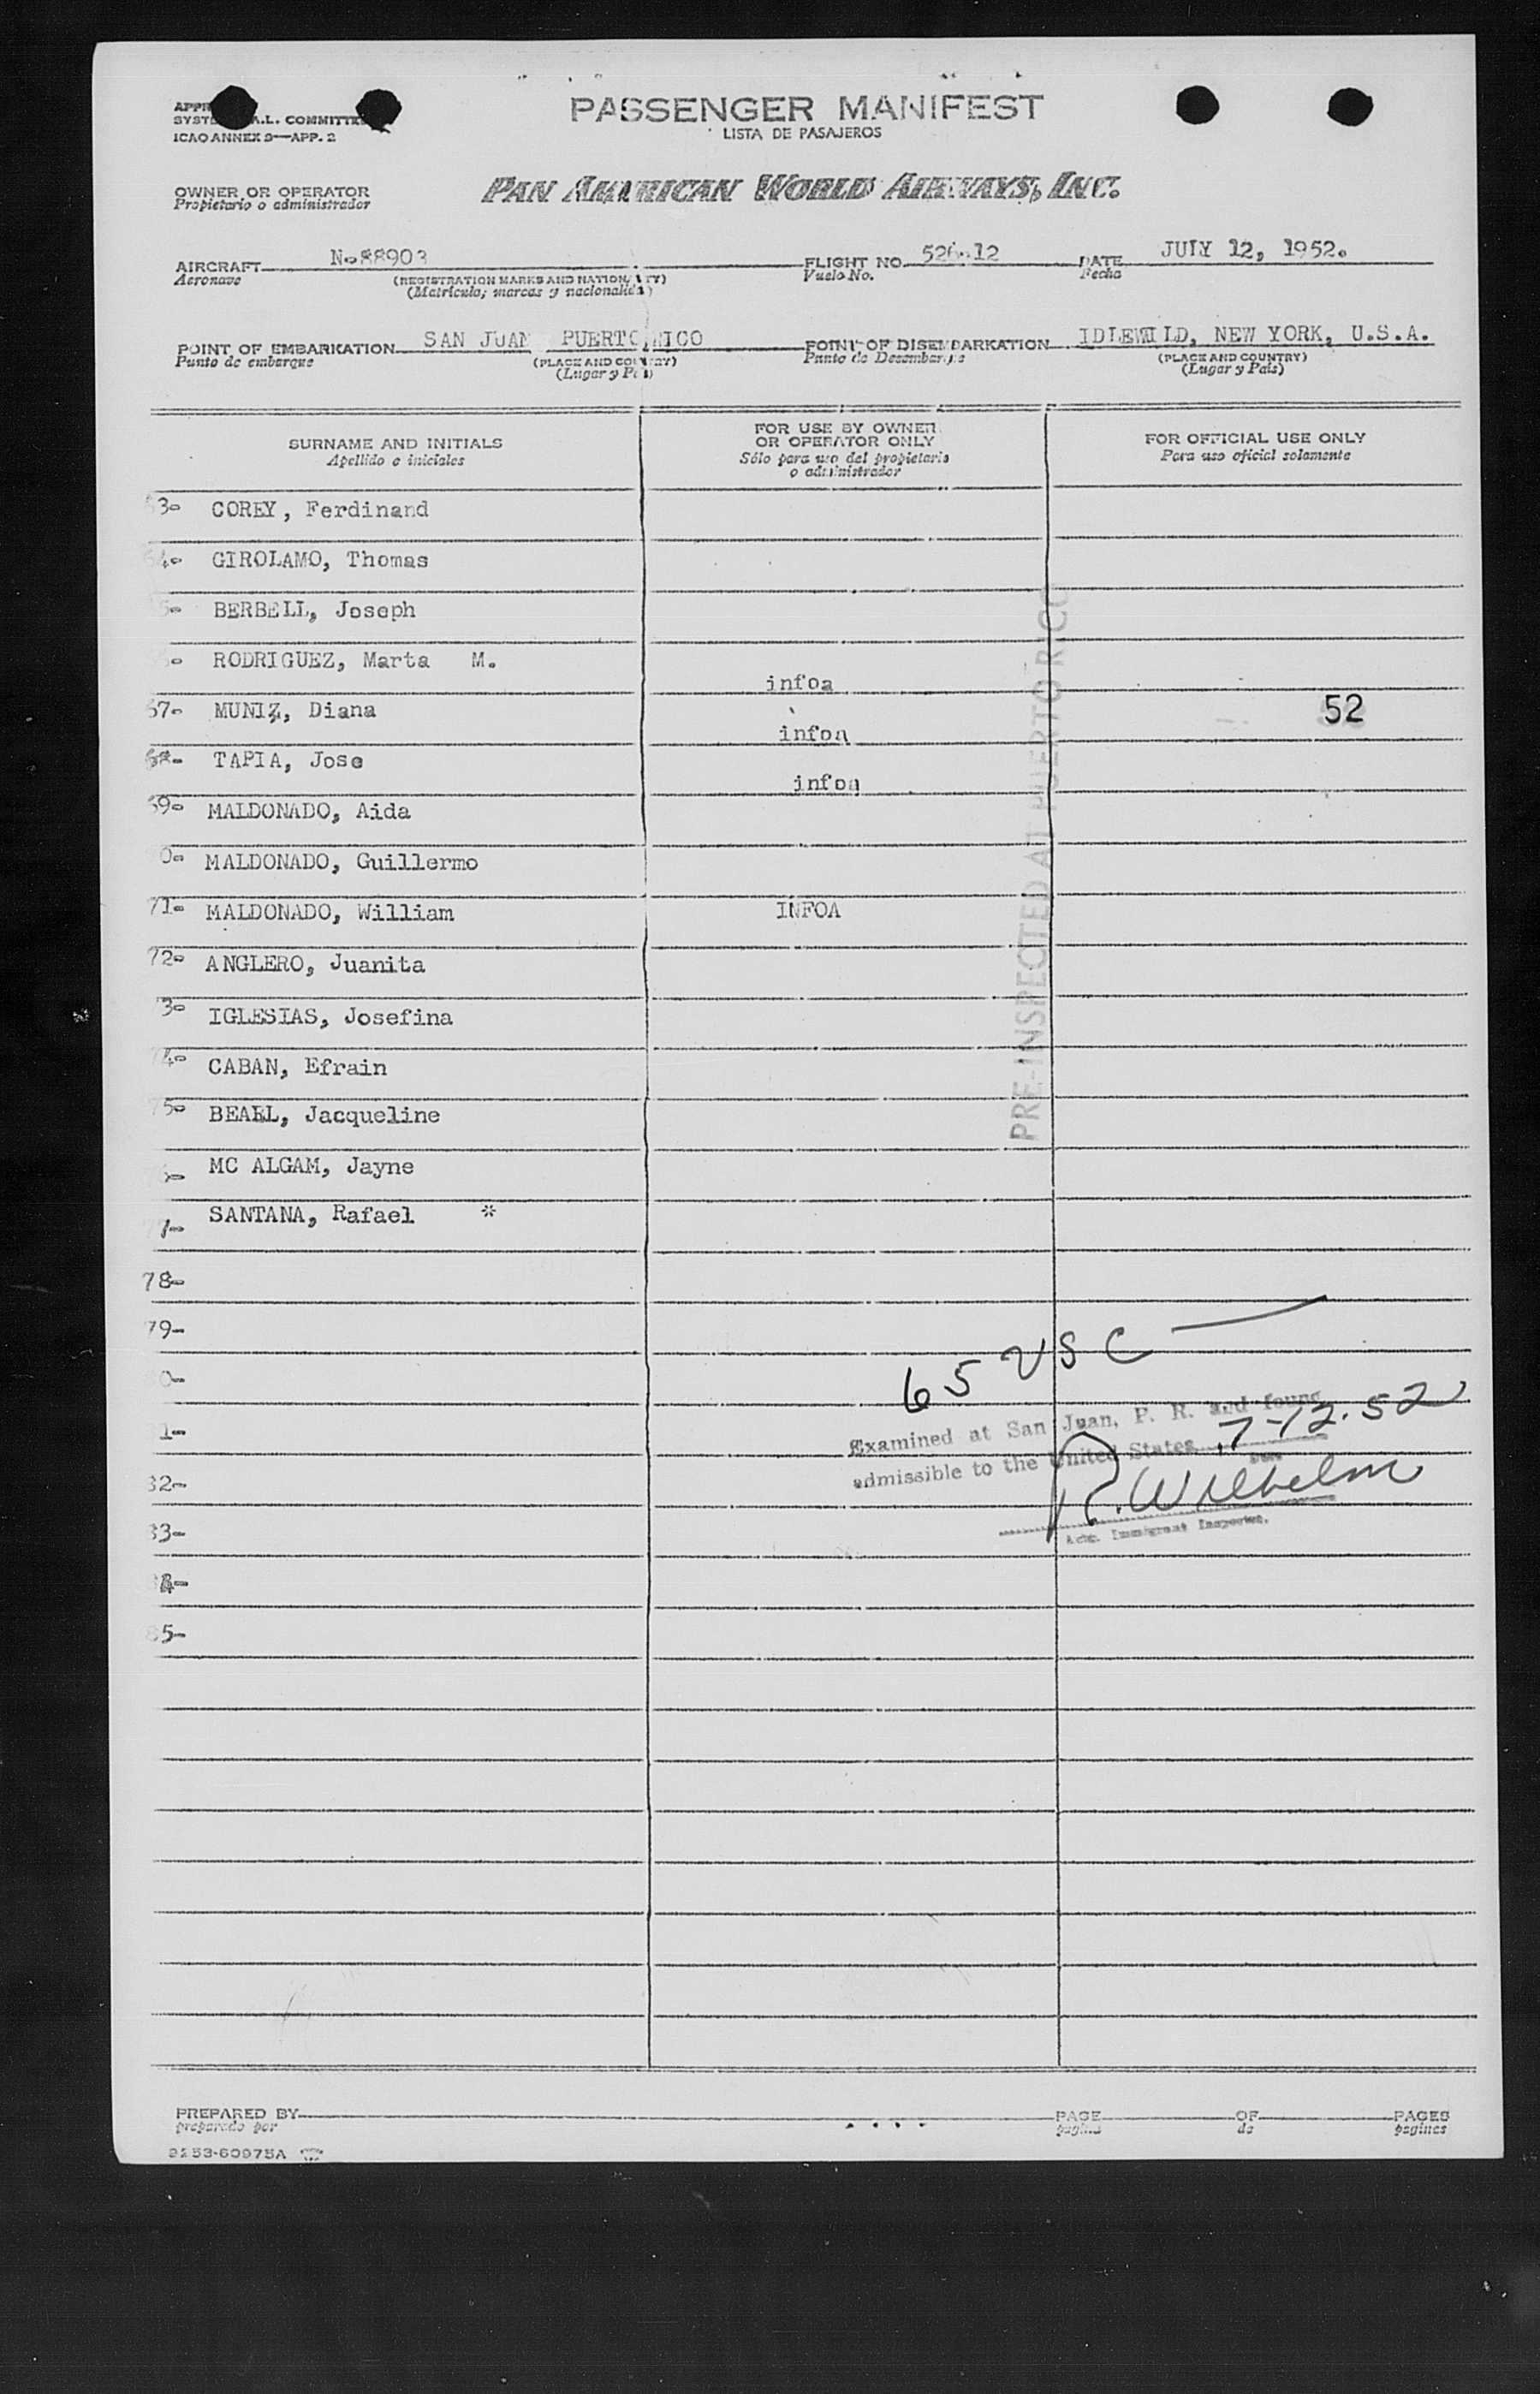 PASSENGER MANIFEST
LISTA DE PASAJEROS
A.L. COMMITTEE
ICAO ANNEX 9—APP. 2
OWNER OR OPERATOR
Propietario o administrador
PAN AMERICAN WORLD AIRWAYS, INC.
AIRCRAFT N-88903 FLIGHT NO. 526-12 DATE JULY 12, 1952.
Aeronave (REGISTRATION MARKS AND NATIONALITY) Vuelo No. Fecha
(Matrícula; marcas y nacionalidad)
POINT OF EMBARKATION SAN JUAN PUERTO RICO POINT OF DISEMBARKATION IDLEWILD, NEW YORK, U.S.A.
Punto de embarque (PLACE AND COUNTRY) Punto de Desembarque (PLACE AND COUNTRY)
(Lugar y País) (Lugar y País)
SURNAME AND INITIALS
Apellido e iniciales
FOR USE BY OWNER
OR OPERATOR ONLY
Sólo para uso del propietario
o administrador
FOR OFFICIAL USE ONLY
Para uso oficial solamente
3- COREY, Ferdinand
64- GIROLAMO, Thomas
5- BERBELL, Joseph
RODRIGUEZ, Marta M. infoa
67- MUNIZ, Diana infoa 52
68- TAPIA, Jose infoa
69- MALDONADO, Aida
0- MALDONADO, Guillermo
71- MALDONADO, William INFOA
72- ANGLERO, Juanita
3- IGLESIAS, Josefina
74- CABAN, Efrain
75- BEAEL, Jacqueline
MC ALGAM, Jayne
SANTANA, Rafael *
PRE-INSPECTED AT PUERTO RICO
78-
79-
0-
1-
82-
83-
84-
85-
65 USC
Examined at San Juan, P. R. and found
admissible to the United States 7-12-52
Date
R. Wilhelm
Actg. Immigrant Inspector.
PREPARED BY PAGE OF PAGES
preparado por pagina de paginas
9253-60975A